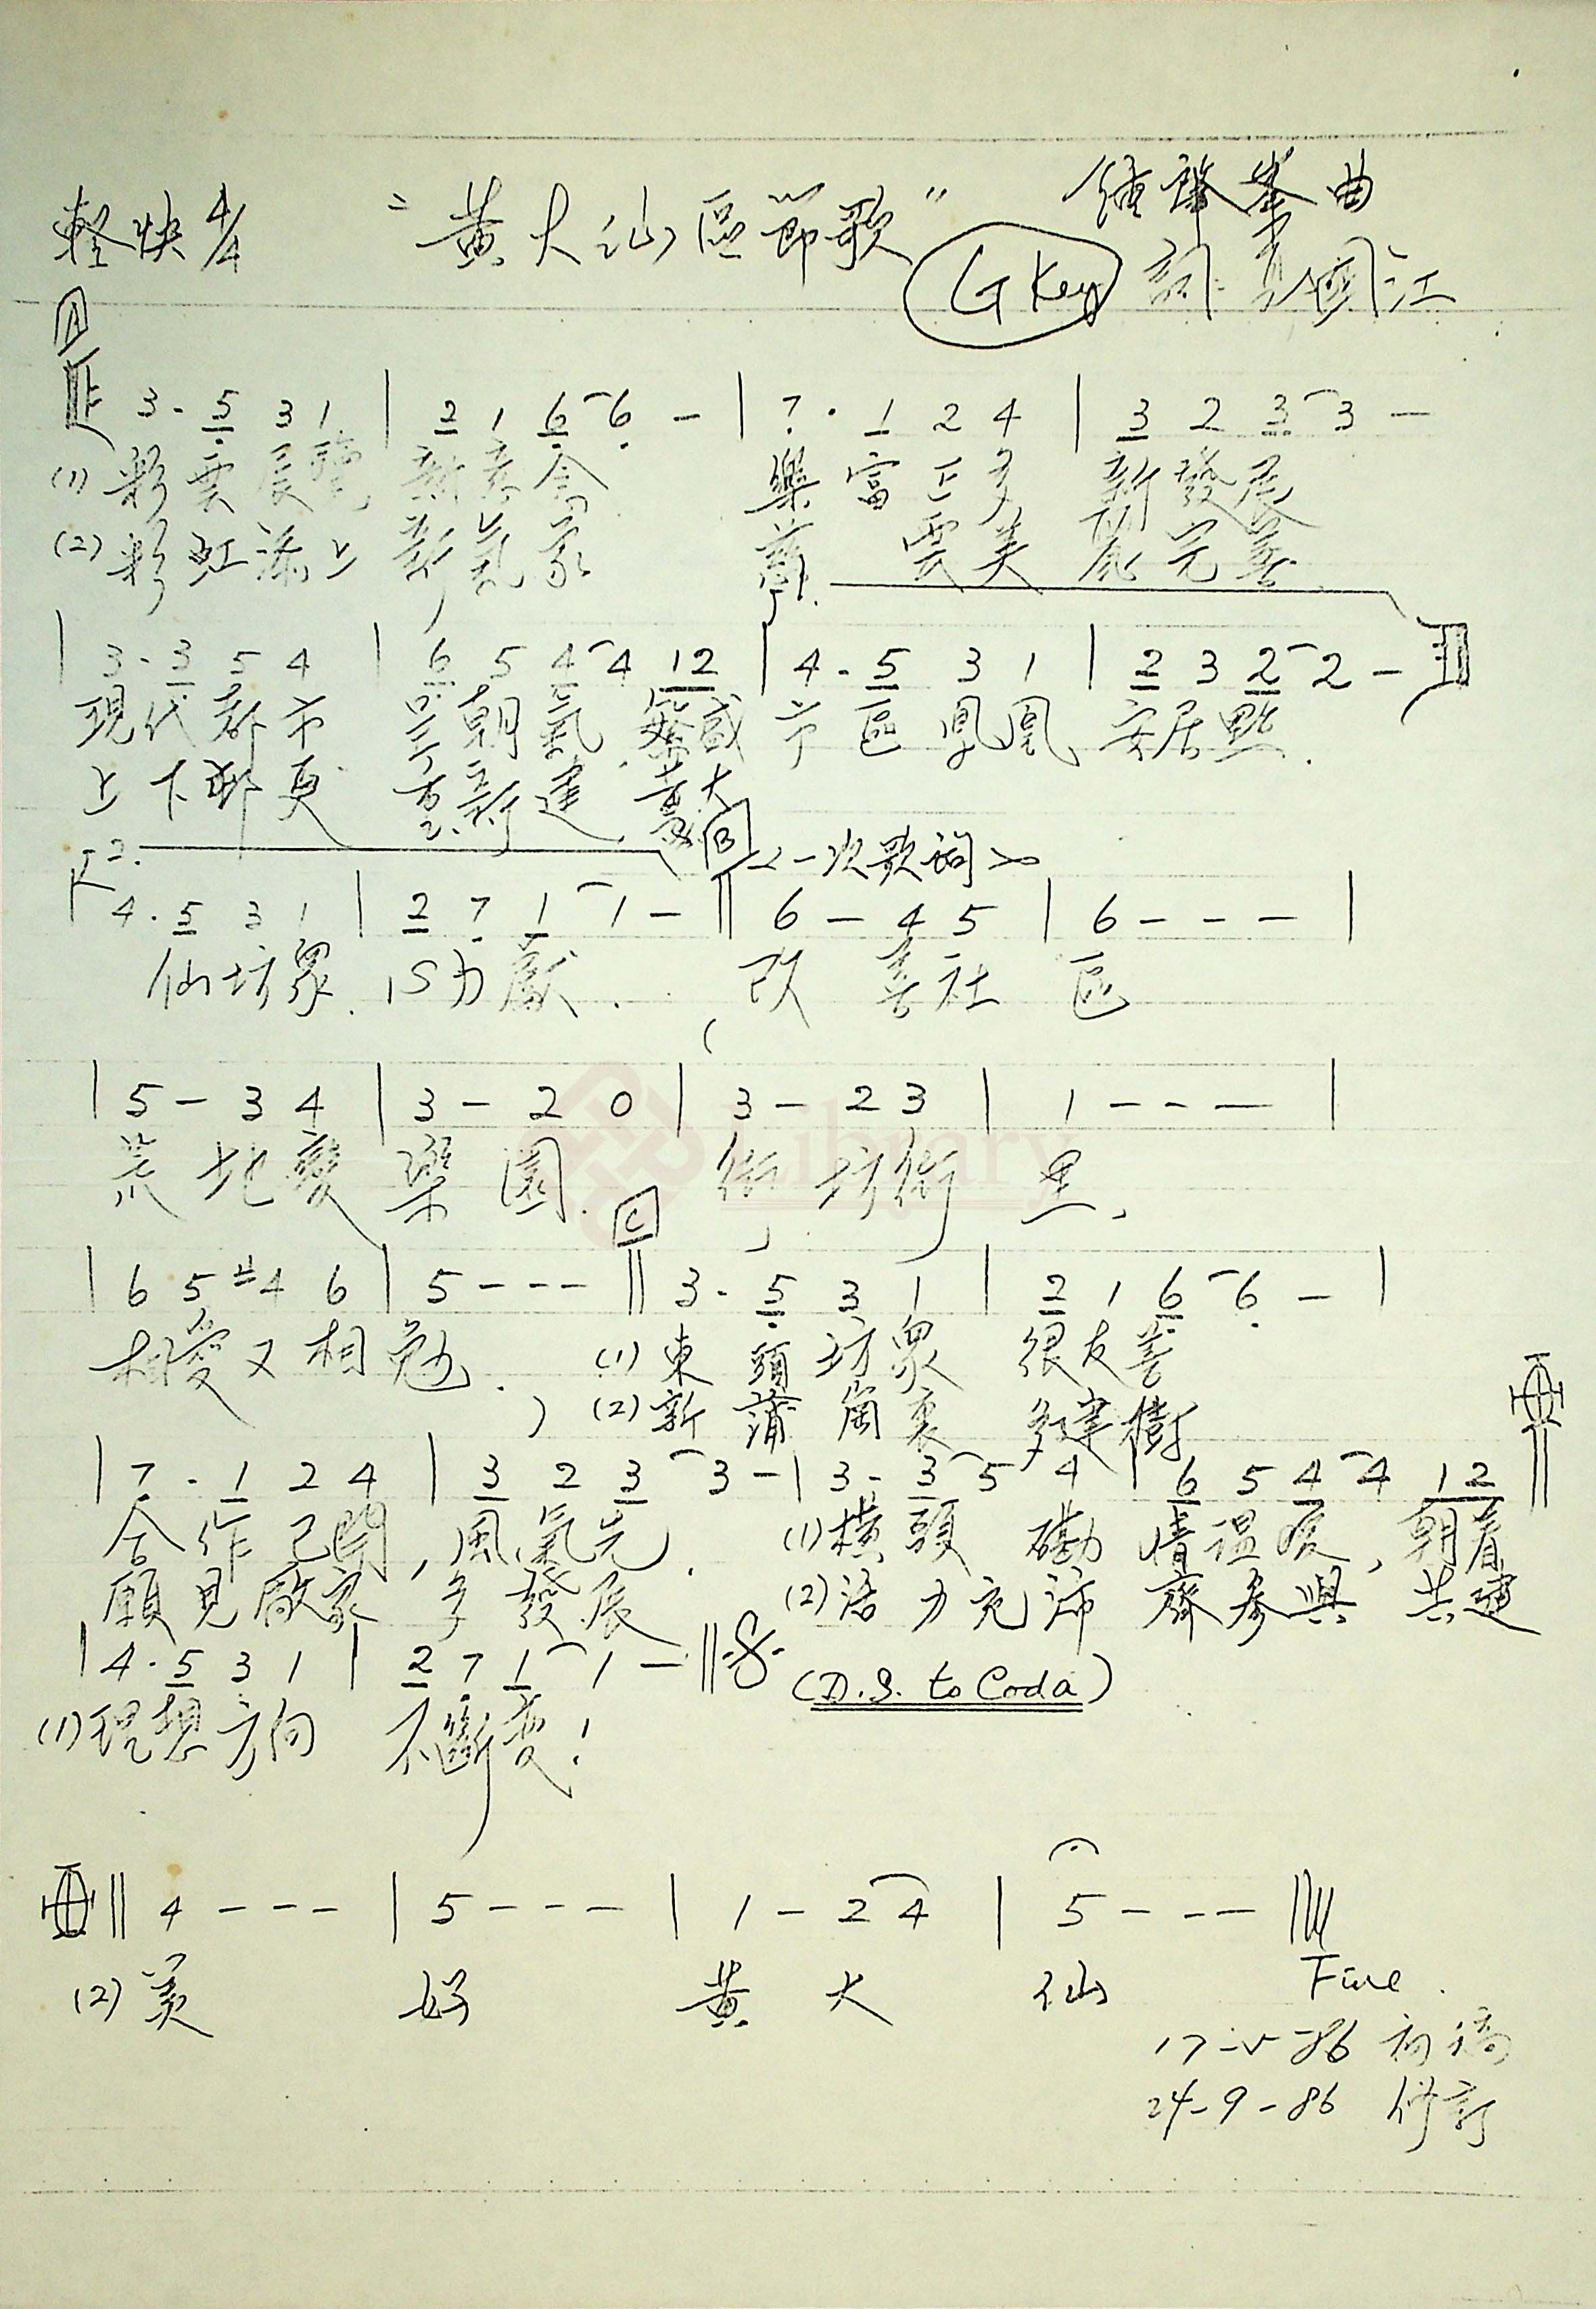 輕快 4/4 "黃大仙區節歌" 鍾肇峯曲
G Key 詞: 國江
A
3 . 5 3 1 | 2 1 6 6 - | 7 . 1 2 4 | 3 2 3 3 -
(1) 彩雲展覽 新 樂富正多 新發展
(2) 彩虹添上 新氣象 慈雲美 完善
1.
| 3 . 3 5 4 | 6 5 4 4 1 2 | 4 . 5 3 1 | 2 3 2 2 -
現代都市 呈朝氣, 繁盛市區鳳凰, 安居點.
上下邨更 重新建, 黃大
2. B <一次歌詞>
4 . 5 3 1 | 2 7 1 1 - || 6 - 4 5 | 6 - - - |
仙坊眾, 力獻. 改善社區
| 5 - 3 4 | 3 - 2 0 | 3 - 2 3 | 1 - - - |
荒地變樂園. 街坊街里,
C
| 6 5 #4 6 | 5 - - - || 3 . 5 3 1 | 2 1 6 6 - |
相愛又相勉. (1) 東頭坊眾 很友善
(2) 新蒲崗裏 多建樹
| 7 . 1 2 4 | 3 2 3 3 - | 3 . 3 5 4 | 6 5 4 4 1 2 ||
合作已開, 風氣先. (1) 橫頭磡 情溫暖, 朝着
願見廠家 多發展 (2) 活力充沛 齊參與 共建
| 4 . 5 3 1 | 2 7 1 1 - || (D.S. to Coda)
(1) 理想方向 不斷變!
|| 4 - - - | 5 - - - | 1 - 2 4 | 5 - - - ||
(2) 美好黃大仙 Fine.
17-V-86 初稿
24-9-86 修訂
Library